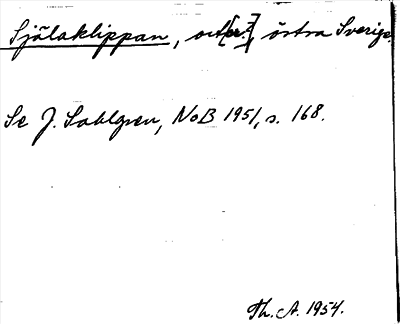 Själaklippan, ort[er?], östra Sverige.
Se J. Sahlgren, NoB 1951, s. 168.
Th. A. 1954.